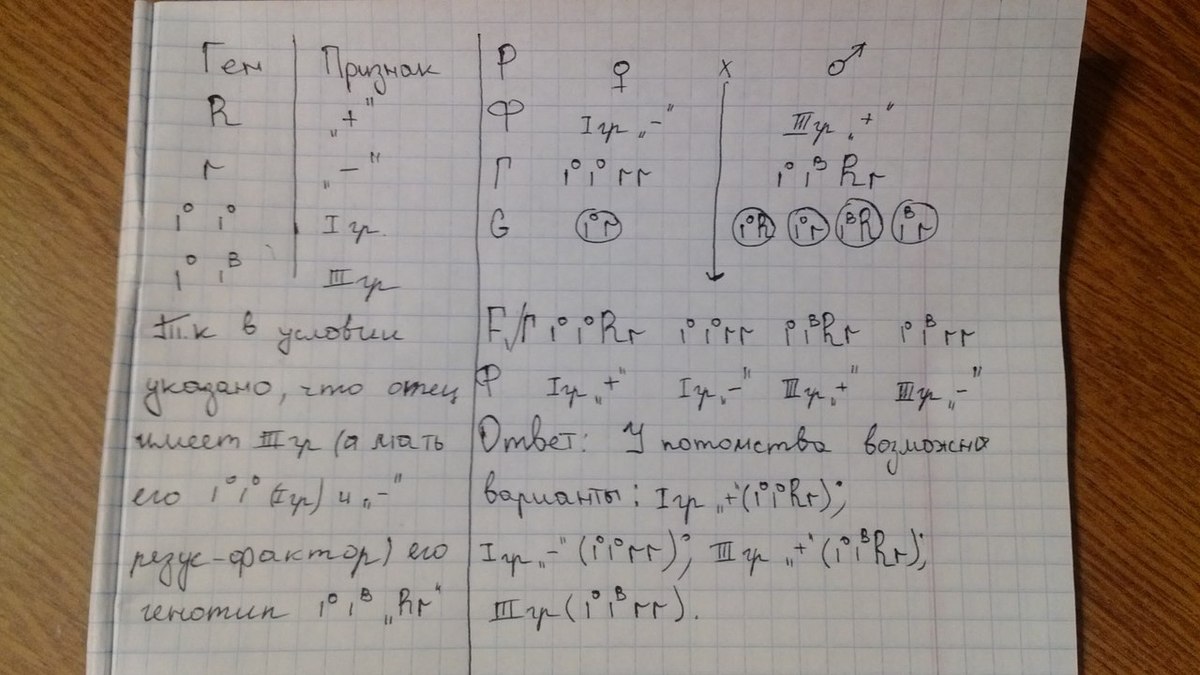 Ген Признак
R „+"
r „–"
i⁰ i⁰ I гр.
i⁰ iᴮ III гр
Т.к в условии
указано, что отец
имеет III гр (а мать
его i⁰i⁰ (I гр) и „–"
резус-фактор) его
генотип i⁰iᴮ „Rr"
P ♀ x ♂
Ф I гр „–" III гр „+"
Г i⁰i⁰ rr i⁰iᴮ Rr
G i⁰r i⁰R i⁰r iᴮR iᴮr
F₁/Г i⁰i⁰Rr i⁰i⁰rr i⁰iᴮRr i⁰iᴮrr
Ф I гр „+" I гр „–" III гр „+" III гр „–"
Ответ: У потомства возможна
варианты: I гр „+" (i⁰i⁰Rr);
I гр „–" (i⁰i⁰rr); III гр „+" (i⁰iᴮRr);
III гр (i⁰iᴮrr).